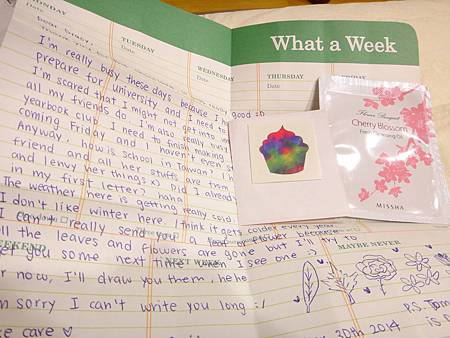 MONDAY
Date
TUESDAY
Date
WEDNESDAY
Date
What a Week
THURSDAY
Date
FRIDAY
Date
dear Gracy,
good :D
I'm really busy these days because I
prepare for university and I need to
I'm scared that I might not get into
all my friends do. I'm also really busy
yearbook club. I need to finish making
coming Friday and I haven't even st
Anyway, how is school in Taiwan?
friend and all her stuffs are from
and I envy her things x) Did I already
in my first letter? haha
The weather here is getting really cold.
I don't like winter here. I think it gets colder every year
I can't really send you a leaf or flower because
all the leaves and flowers are gone but I'll try
get you some next time when I see one :)
For now, I'll draw you them, hehe
I'm sorry I can't write you long :/
take care ♡
30th 2014
P.S. Tomo
is
WEEKEND
NEXT WEEK
MAYBE NEVER
Flower Bouquet
Cherry Blossom
Fresh Cleansing Oil
MISSHA